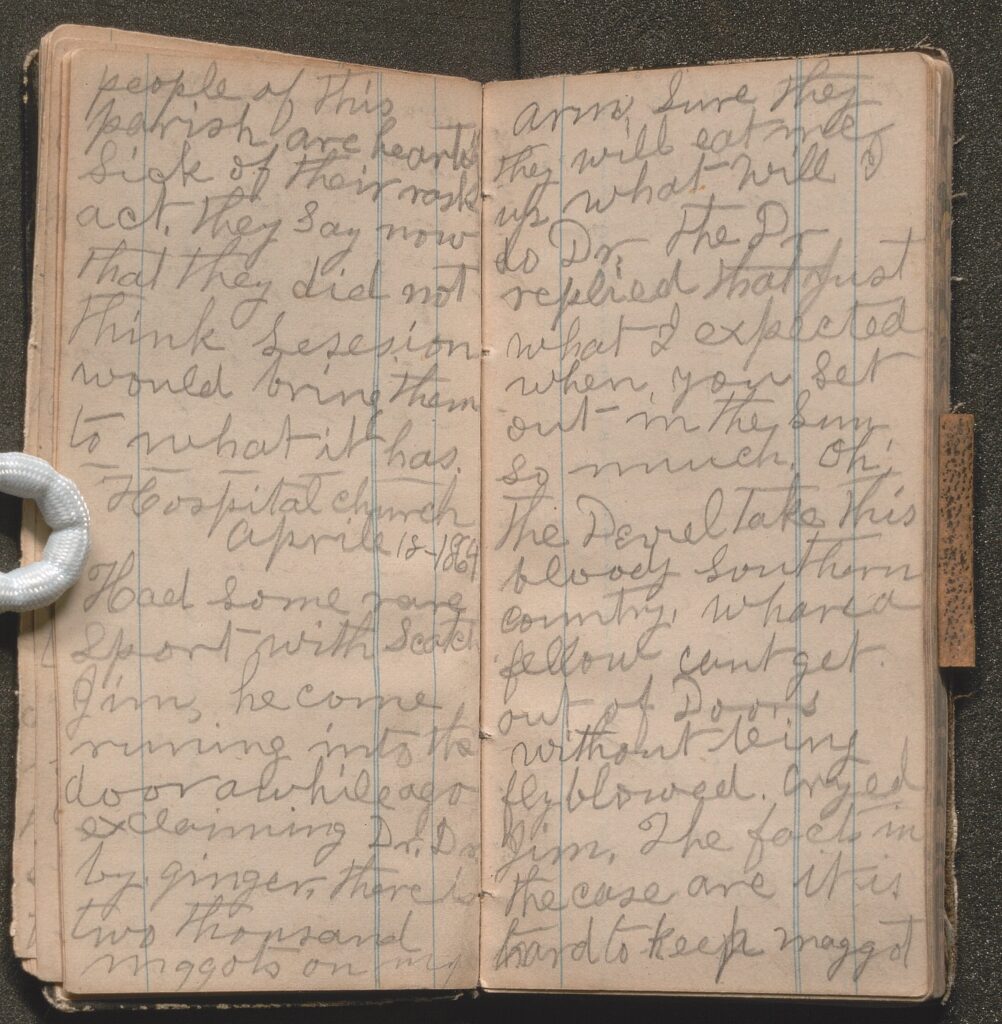 people of this
parish are heartl
Sick of their rash
act. they Say now
that they did not
think Sesesion
would bring them
to what it has.
Hospital church
Aprile 18-1864
Had Some rare
Sport with Scotch
Jim, he come
runing into the
door awhile ago
exclaiming Dr. Dr.
by ginger, there is
two thousand
maggots on my
arm, Sure they
they will eat me
up what will I
do Dr. The Dr
replied that just
what I expected
when you Set
out in the Sun
So much. Oh,
the Devel take this
bloody Southern
country, whare a
fellow cant get
out of Doors
without being
fly blowed. Cryed
Jim, The facts in
the case are it is
hard to keep maggot